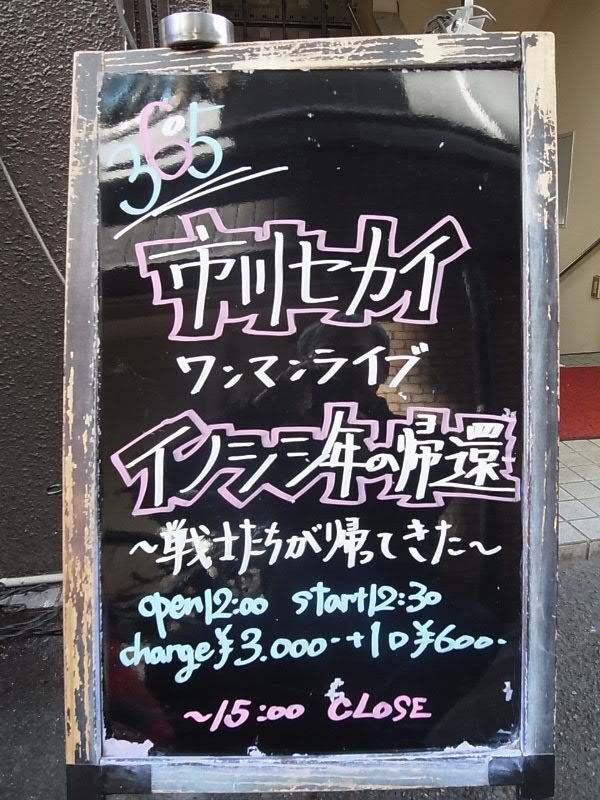 365
市川セカイ
ワンマンライブ
イノシシ年の帰還
～戦士たちが帰ってきた～
open12:00 start12:30
change¥3.000-+1D¥600-
～15:00 CLOSE